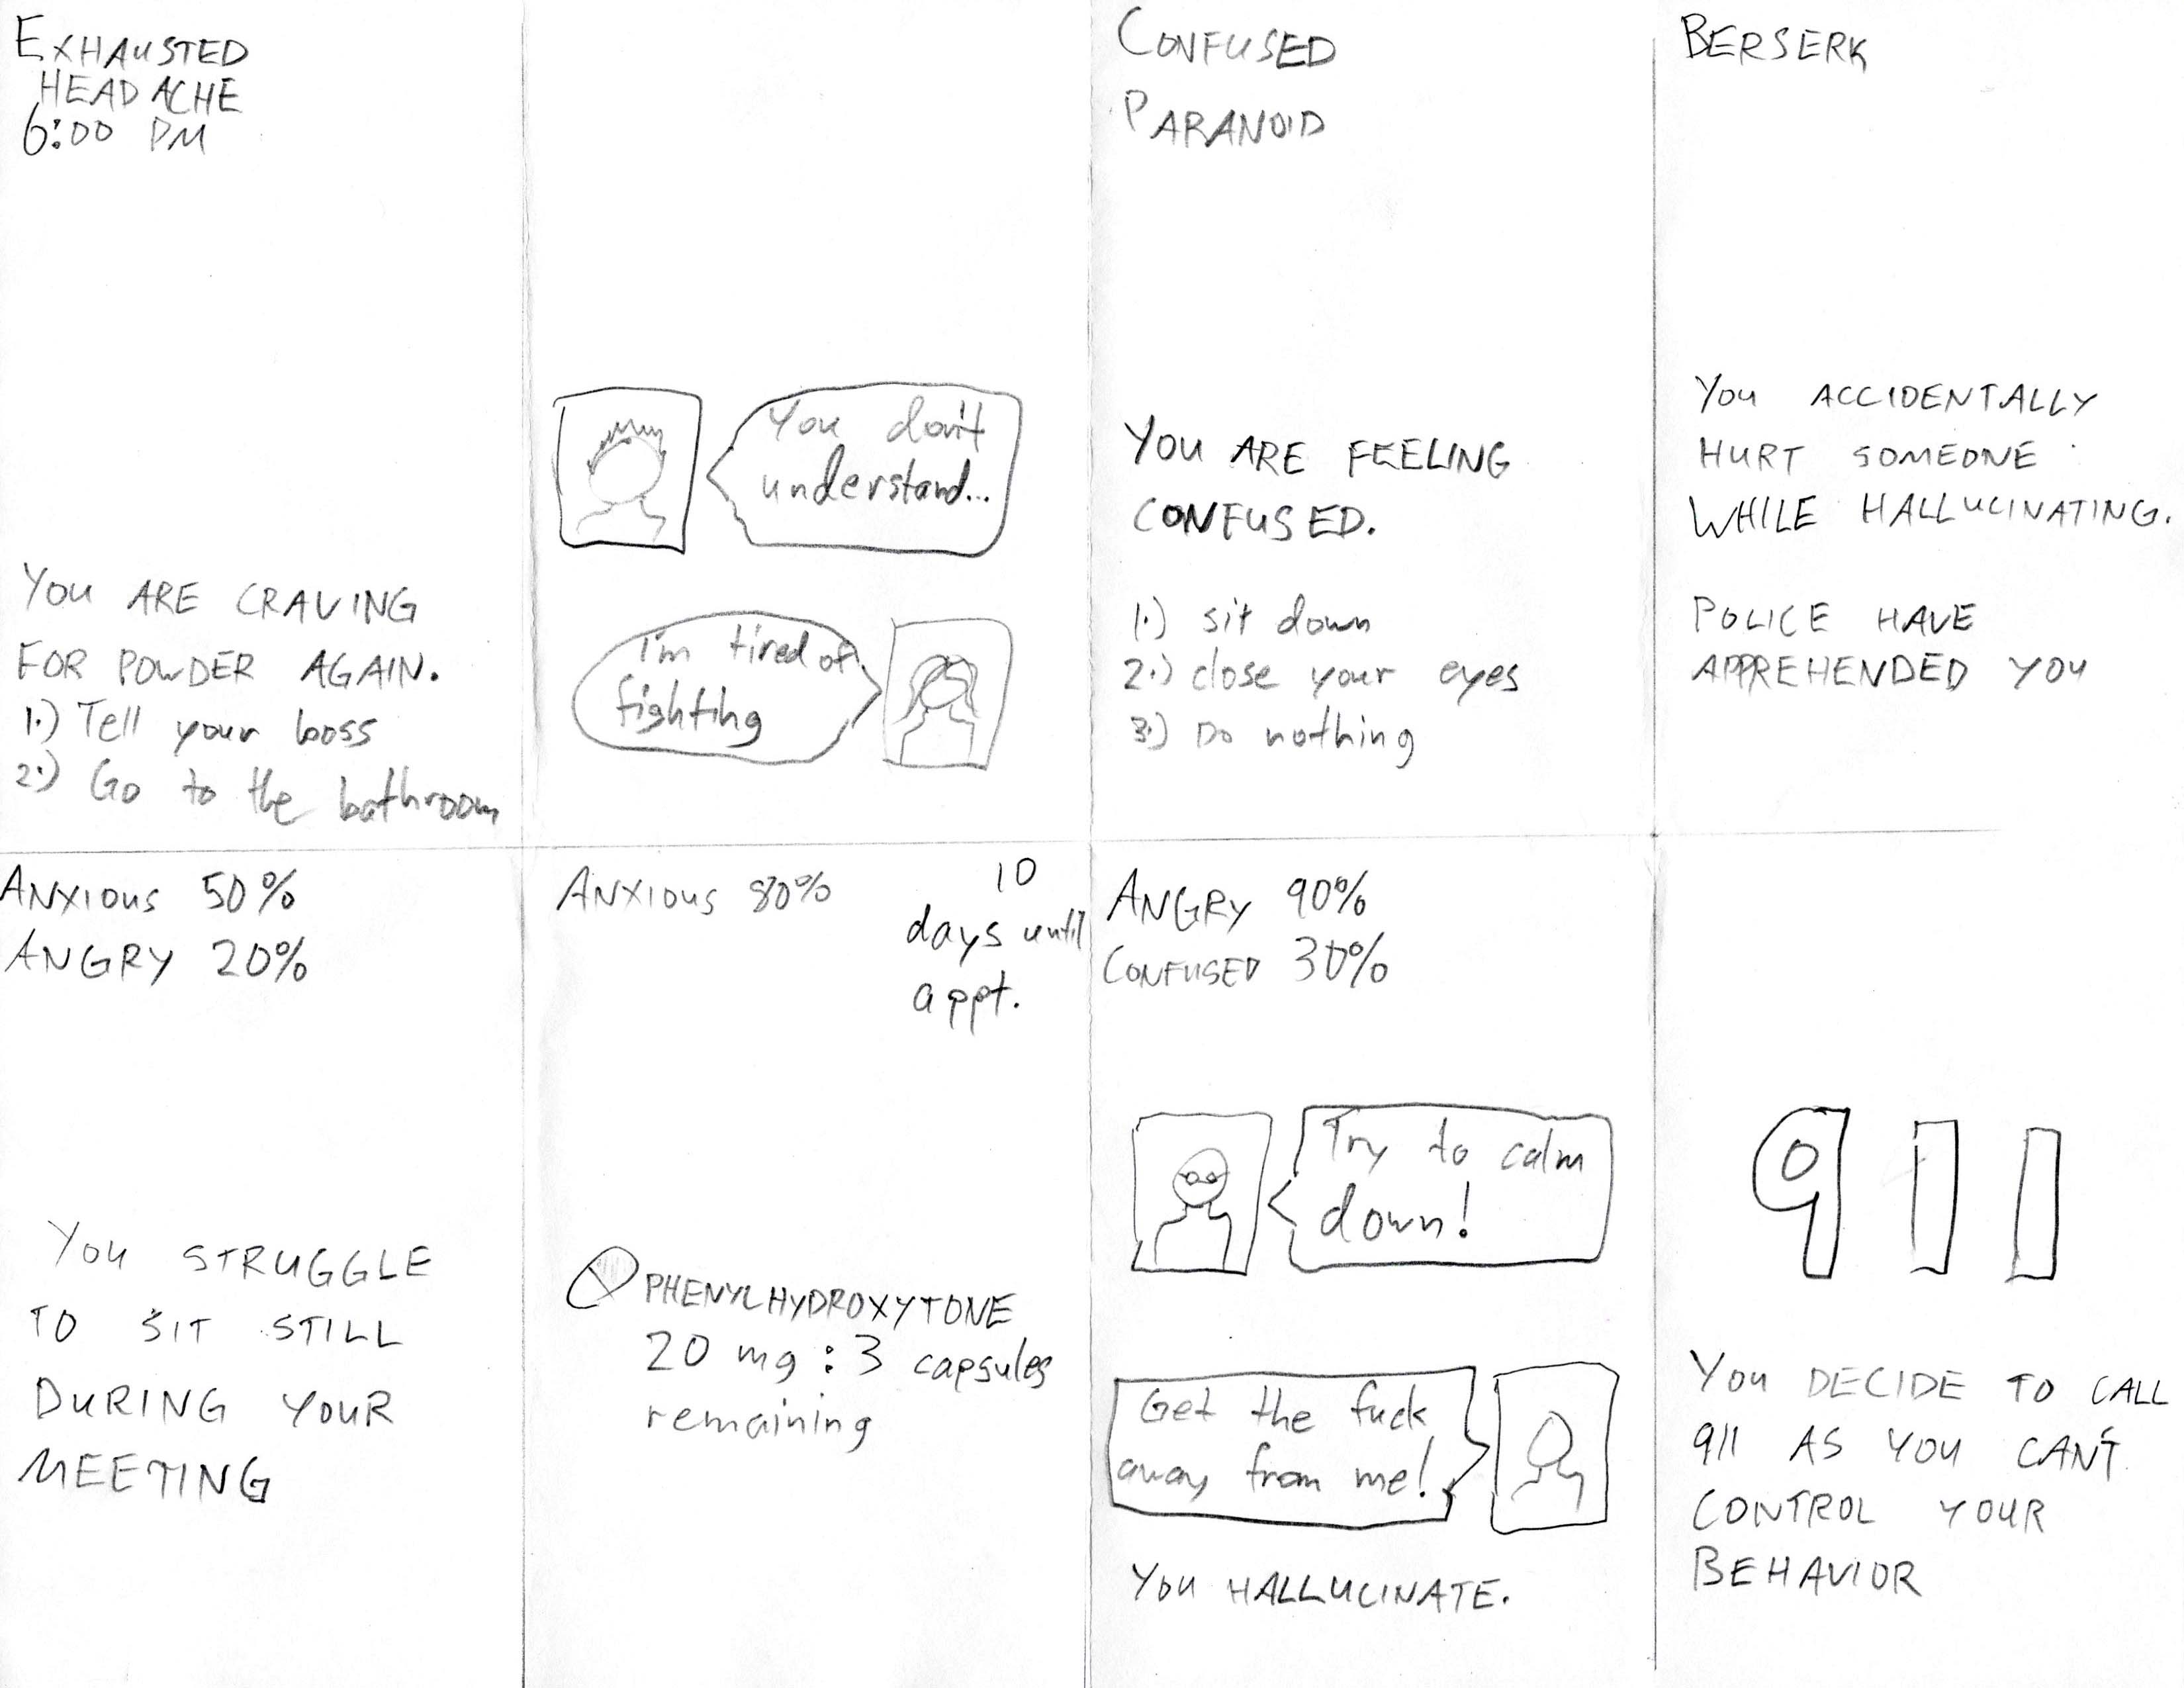 EXHAUSTED
HEADACHE
6:00 PM
YOU ARE CRAVING
FOR POWDER AGAIN.
1.) Tell your boss
2.) Go to the bathroom
You don't
understand...
I'm tired of
fighting
CONFUSED
PARANOID
YOU ARE FEELING
CONFUSED.
1.) sit down
2.) close your eyes
3.) Do nothing
BERSERK
YOU ACCIDENTALLY
HURT SOMEONE
WHILE HALLUCINATING.
POLICE HAVE
APPREHENDED YOU
ANXIOUS 50%
ANGRY 20%
YOU STRUGGLE
TO SIT STILL
DURING YOUR
MEETING
ANXIOUS 80%
10
days until
appt.
PHENYLHYDROXYTONE
20 mg : 3 capsules
remaining
ANGRY 90%
CONFUSED 30%
Try to calm
down!
Get the fuck
away from me!
YOU HALLUCINATE.
911
YOU DECIDE TO CALL
911 AS YOU CAN'T
CONTROL YOUR
BEHAVIOR